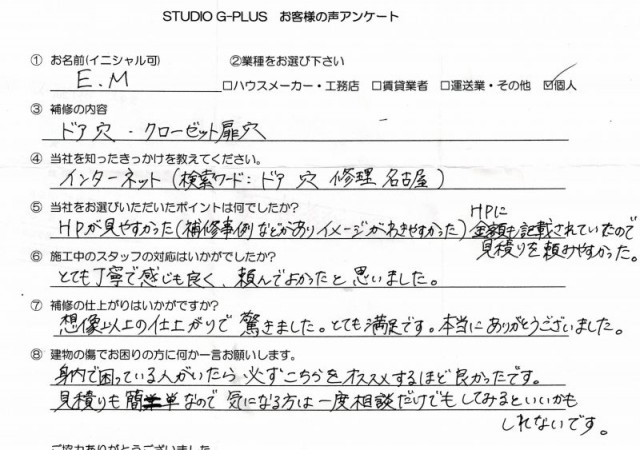 STUDIO G-PLUS お客様の声アンケート
① お名前(イニシャル可) ②業種をお選び下さい
E.M □ハウスメーカー・工務店 □賃貸業者 □運送業・その他 ☑個人
③ 補修の内容
ドア穴・クローゼット扉穴
④ 当社を知ったきっかけを教えてください。
インターネット(検索ワード:ドア 穴 修理 名古屋)
⑤ 当社をお選びいただいたポイントは何でしたか?
HPが見やすかった(補修事例などがありイメージがわきやすかった)HPに
金額も記載されていたので
見積りを頼みやすかった。
⑥ 施工中のスタッフの対応はいかがでしたか?
とても丁寧で感じも良く、頼んでよかったと思いました。
⑦ 補修の仕上がりはいかがですか?
想像以上の仕上がりで驚きました。とても満足です。本当にありがとうございました。
⑧ 建物の傷でお困りの方に何か一言お願いします。
身内で困っている人がいたら必ずこちらをオススメするほど良かったです。
見積りも簡単なので気になる方は一度相談だけでもしてみるといいかも
しれないです。
ご協力ありがとうございました